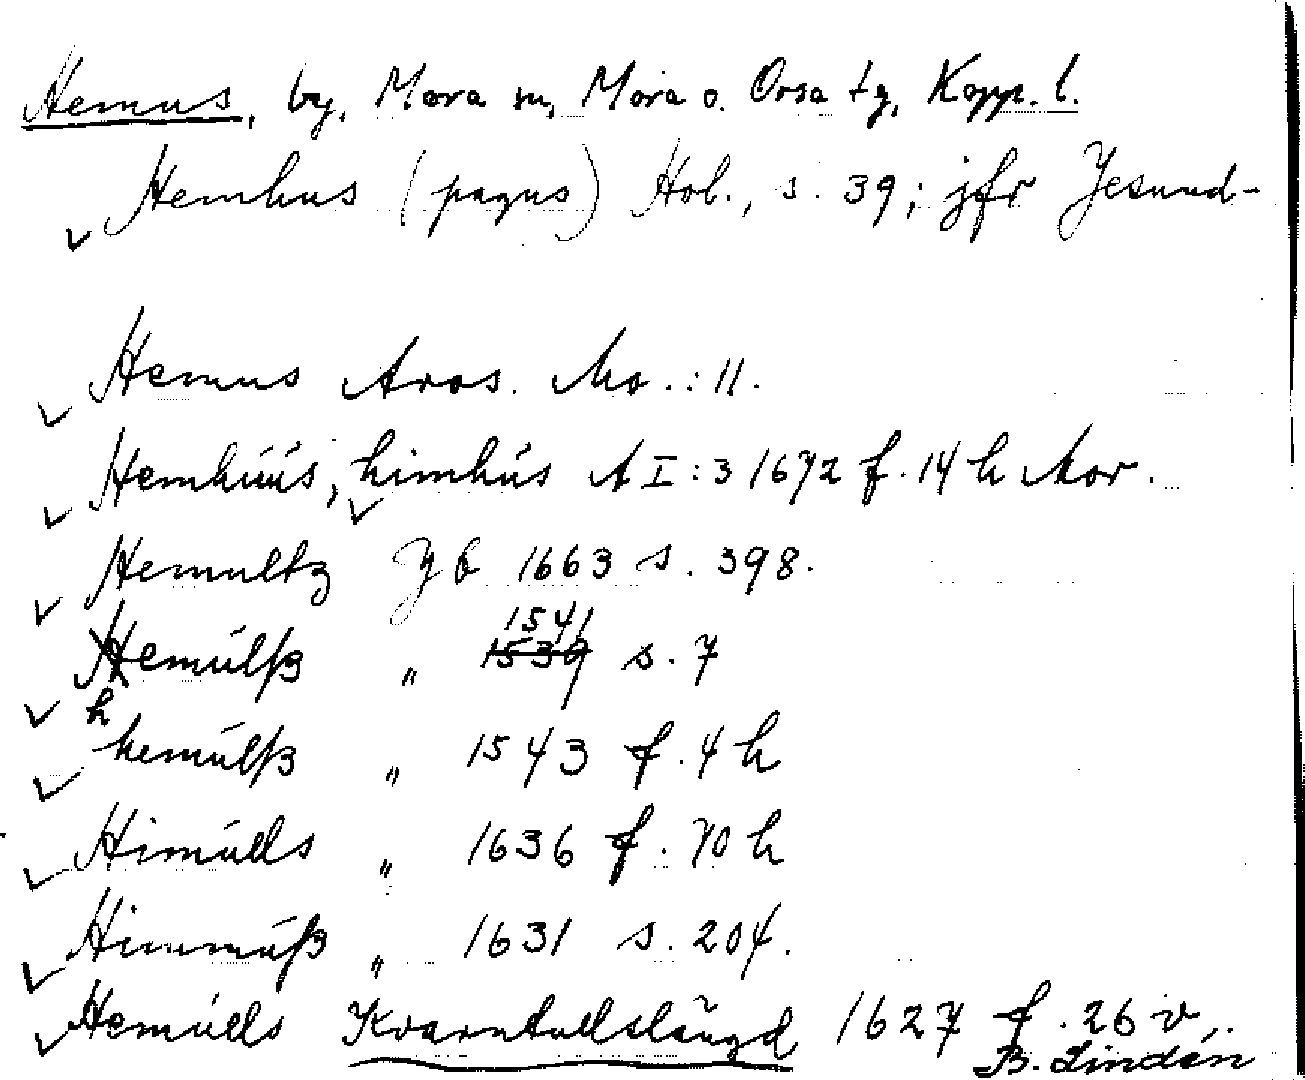 Hemus, by, Mora sn, Mora o. Orsa tg, Kopp. l.
Hemhus (pagus) Hol., s. 39; jfr Jesund-
Hemus Aros. Mo.: 11.
Hemhúús, himhús A I:3 1672 f. 14 h Mor.
Hemultz Jb 1663 s. 398.
1541
Hemúlß " 1539 s. 7
h
hemúlß " 1543 f. 4 h
Himúlls " 1636 f. 70 h
Himmúß " 1631 s. 204.
Hemúlls Kvarntullslängd 1627 f. 26 v.
B. Lindén